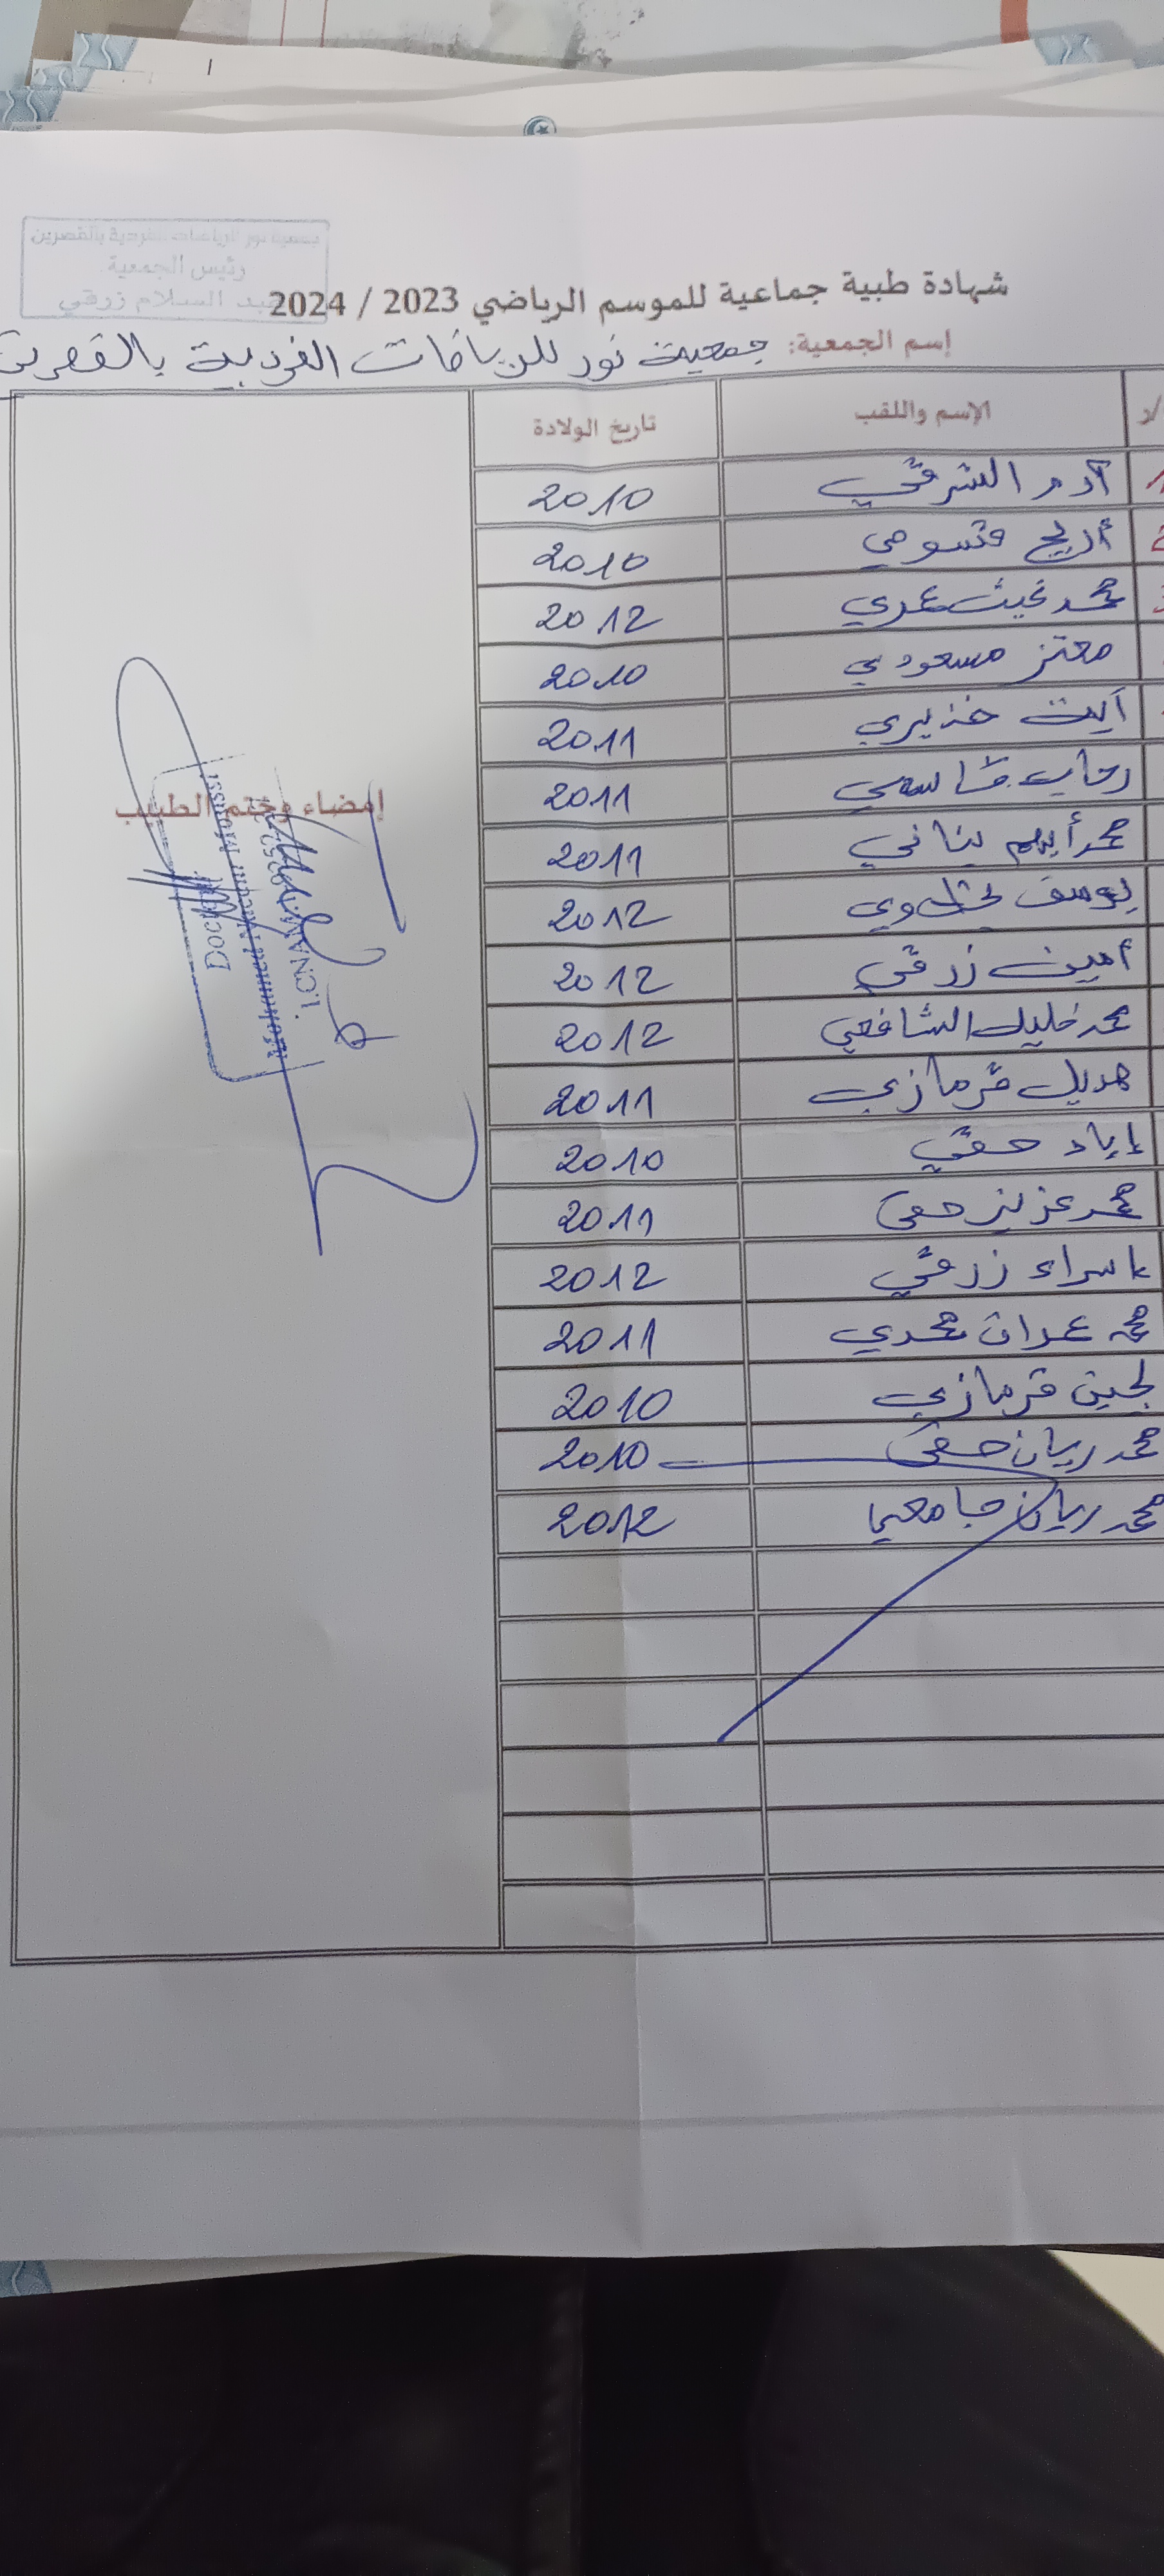 جمعية نور للرياضات الفردية بالقصرين
رئيس الجمعية
عبد السلام زرقي
شهادة طبية جماعية للموسم الرياضي 2023 / 2024
إسم الجمعية: جمعية نور للرياضات الفردية بالقصرين
ر/ الإسم واللقب تاريخ الولادة
1 آدم الشرقي 2010
2 أريج قسومي 2010
3 محمد غيث عمري 2012
معتز مسعودي 2010
آيت خذيري 2011
رحاب قاسمي 2011
محمد أيهم بناني 2011
يوسف 2012
أمين زرقي 2012
محمد خليل الشافعي 2012
هديل قرمازي 2011
إياد حقي 2010
محمد عزيز حقي 2011
إسراء زرقي 2012
محمد عمران محمدي 2011
لجين قرمازي 2010
محمد ريان حقي 2010
محمد ريان جامعي 2012
إمضاء وختم الطبيب
Docteur
Mohamed
I.CNAM